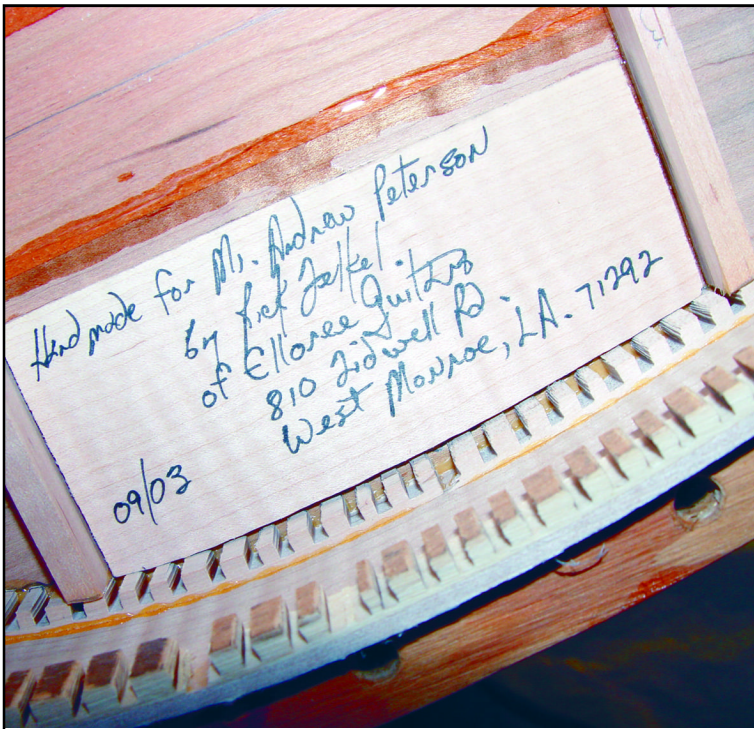 Handmade for Mr. Andrew Peterson
by Rick
of Elloree Guitars
810 Tidwell Rd.
West Monroe, LA. 71292
09/03